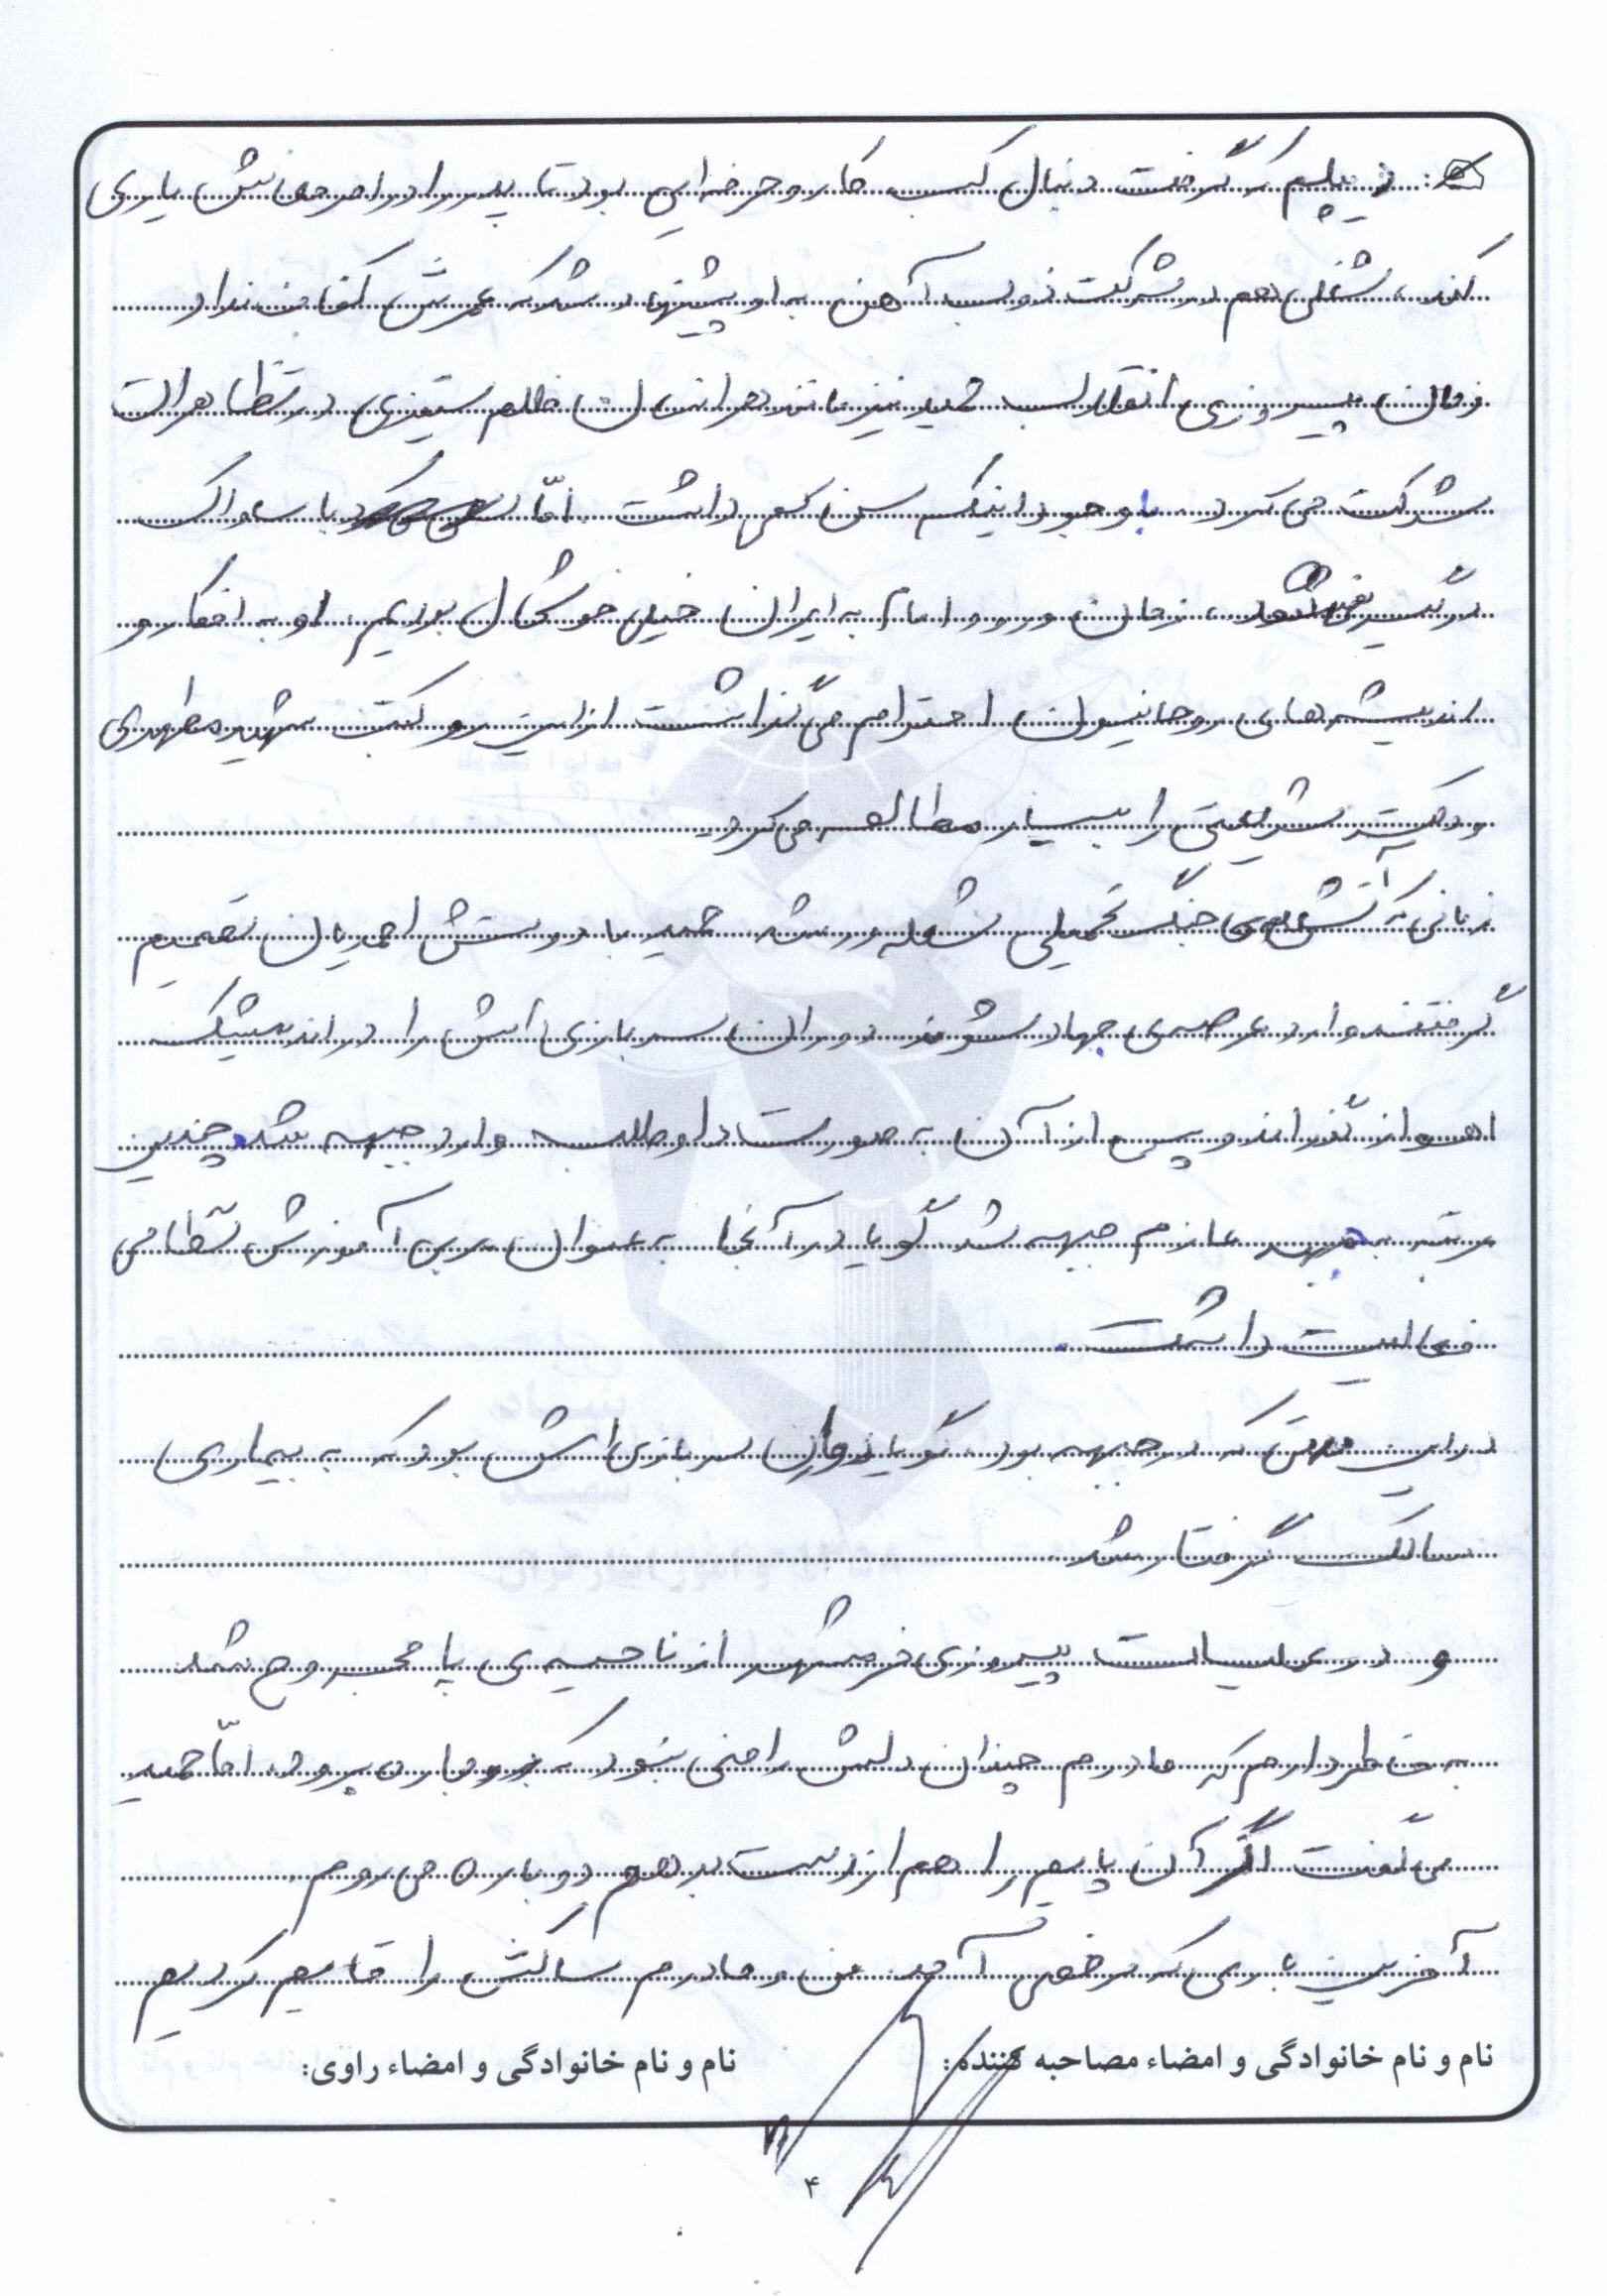 : دیپلم که گرفت دنبال کسب کار و حرفه‌ایی بود تا پدر را در امر معاش یاری
کند، شغلی هم در شرکت ذوب آهن به او پیشنهاد شد که عمرش کفاف نداد
زمان پیروزی انقلاب حمید نیز مانند هر انسان ظلم ستیزی در تظاهرات
شرکت می‌کرد. با وجود اینکه سن کمی داشت اما با ساواک
درگیر نمی‌شد، زمان ورود امام به ایران خیلی خوشحال بودیم. او به افکار و
اندیشه‌های روحانیون احترام می‌گذاشت از این رو کتب شهید مطهری
و دکتر شریعتی را بسیار مطالعه می‌کرد.
زمانی که آتش جنگ تحمیلی شعله‌ور شد حمید با دوستش احمدیان تصمیم
گرفتند وارد عرصه‌ی جهاد شوند. دوران سربازی‌اش را در اندیمشک
اهواز گذراند و پس از آن به صورت داوطلب وارد جبهه شد، چندین
مرتبه عازم جبهه شد گویا در آنجا به عنوان مربی آموزش نظامی
فعالیت داشت.
در این مدتی که در جبهه بود گویا زمان سربازی‌اش بود که به بیماری
سالک گرفتار شد
و در عملیات پیروزی خرمشهر از ناحیه‌ی پا مجروح شد
به خاطر دارم که مادرم چندان دلش راضی نبود که دوباره برود، اما حمید
می‌گفت اگر آن پایم را هم از دست بدهم دوباره می‌روم
آخرین باری که مرخصی آمد من و مادرم ساکش را قایم کردیم
نام و نام خانوادگی و امضاء مصاحبه کننده:
نام و نام خانوادگی و امضاء راوی:
۴